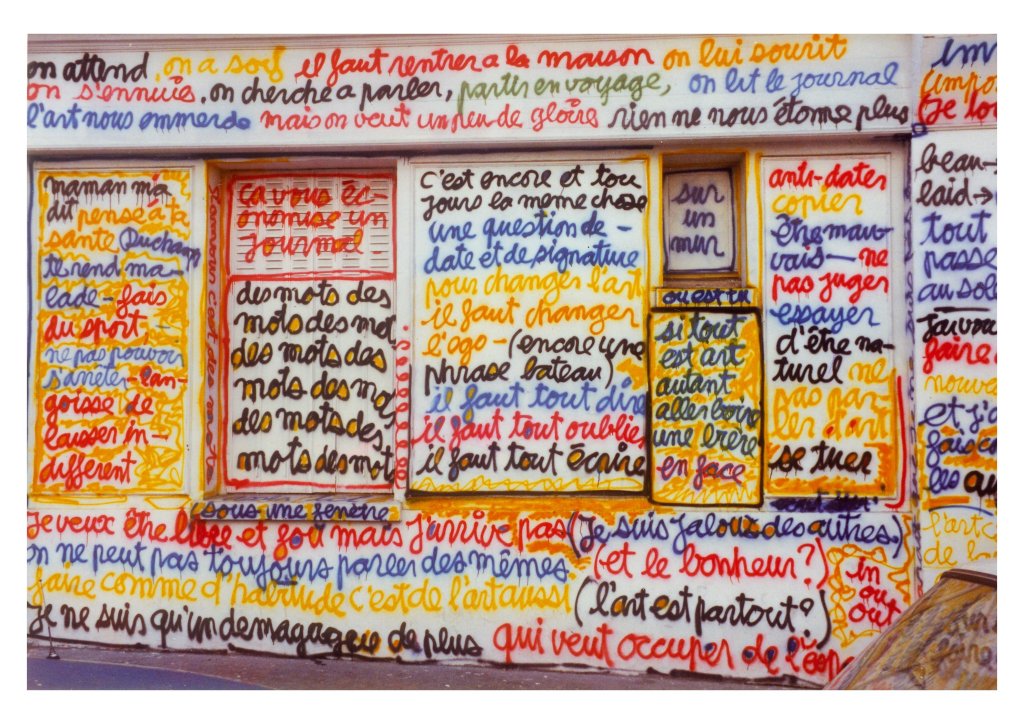 on attend, on a soif il faut rentrer a la maison on lui sourit
on s'ennuies, on cherche a parler, partir en voyage, on lit le journal
l'art nous emmerde mais on veut un peu de gloire rien ne nous étonne plus
maman m'a
dit pense à ta
santé Duchamp
te rend ma-
lade - fais
du sport,
ne pas pouvoir
s'arrêter - l'an-
goisse de
laisser in-
différent
ça vous éc-
onomise un
journal
des mots des
mots des mot
des mots des
mots des m
des mots des
mots des mot
sous une fenêtre
c'est encore et tou
jours la meme chose
une question de -
date et de signature
pour changer l'art
il faut changer
l'ego - (encore une
phrase bateau)
il faut tout dire
il faut tout oublier
il faut tout écrire
sur
un
mur
ou es tu
si tout
est art
autant
aller boire
une bière
en face
anti-dater
copier
être mau-
vais - ne
pas juger
essayer
d'être na-
turel ne
pas par-
ler d'art
se tuer
beau→
laid→
tout
passe
au sol
faire
nouve
et j'a
les
l'art c
de l
je veux être libre et fou mais j'arrive pas (je suis jaloux des autres)
on ne peut pas toujours parler des mêmes (et le bonheur?)
faire comme d'habitude c'est de l'art aussi (l'art est partout?)
in
ou
out
je ne suis qu'un demagogue de plus qui veut occuper de l'esp